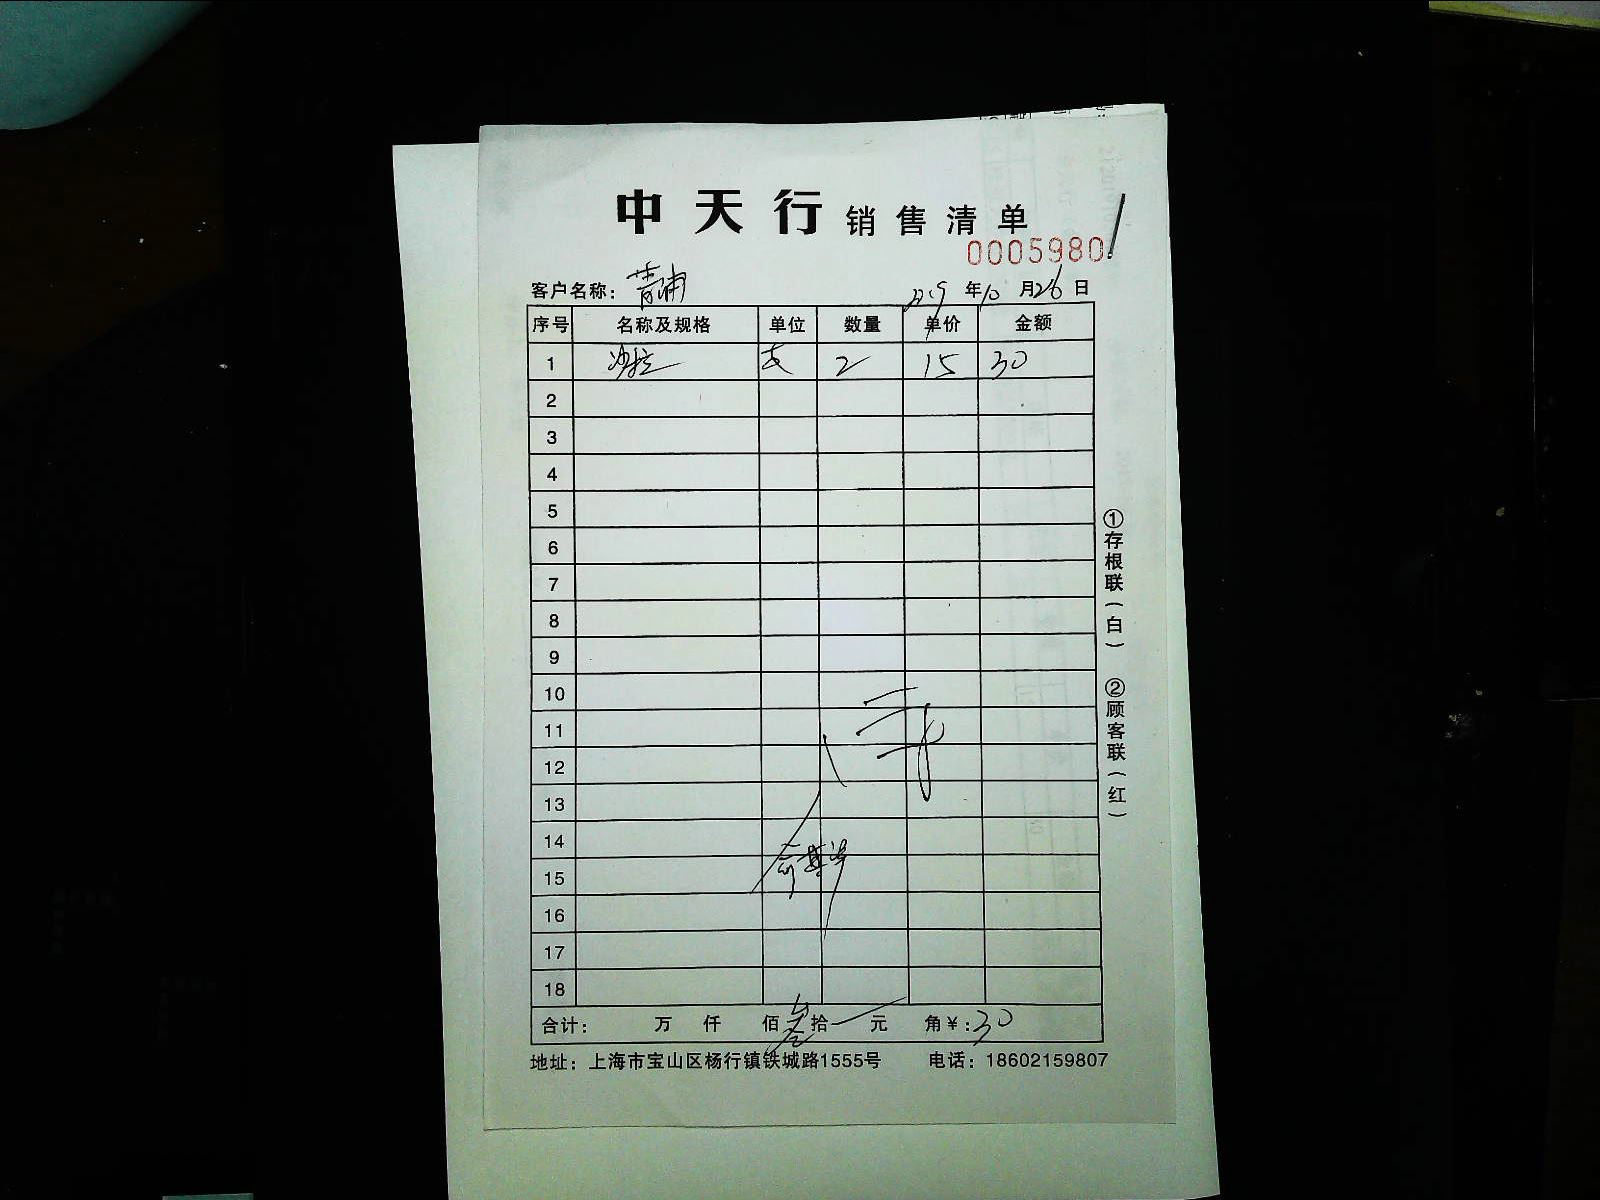 中天行 销售清单
0005980
客户名称：青浦 2019年10月26日
序号 名称及规格 单位 数量 单价 金额
1 沙拉 支 2 15 30
2
3
4
5
6
7
8
9
10
11
12
13
14
15
16
17
18
合计： 万 仟 佰 叁拾 元 角 ¥：30
地址：上海市宝山区杨行镇铁城路1555号 电话：18602159807
①存根联（白） ②顾客联（红）